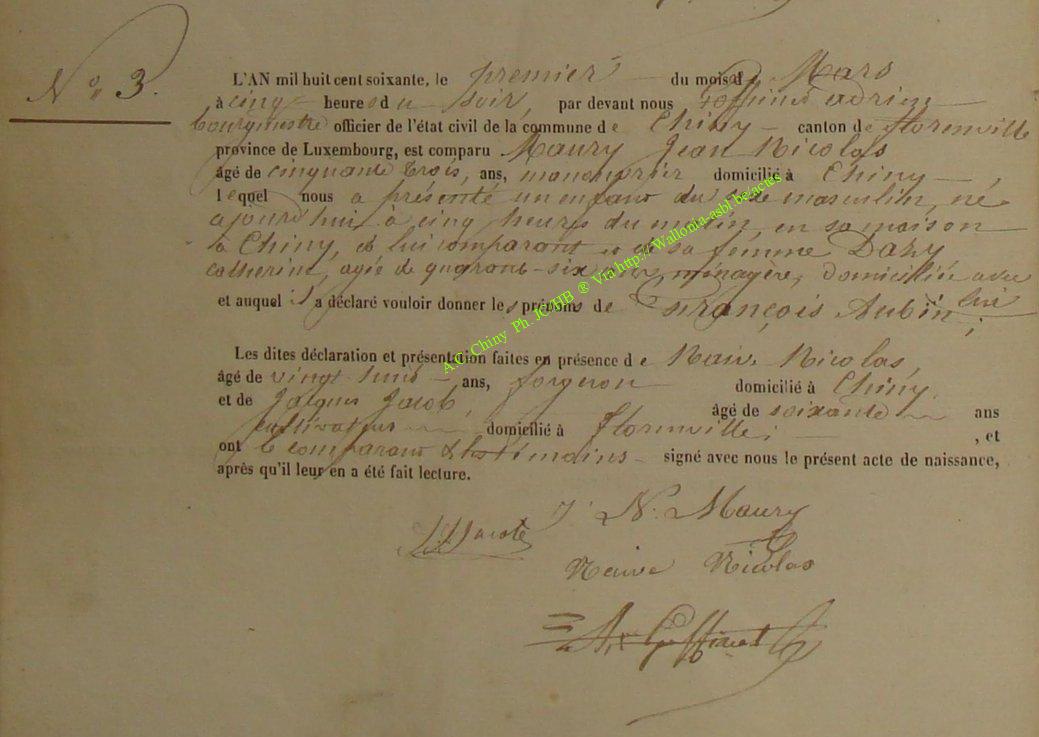 N° 3.
L'AN mil huit cent soixante, le premier du mois de Mars
à cinq heures du soir, par devant nous Goffinet Adrien
bourgmestre officier de l'état civil de la commune de Chiny canton de florenville
province de Luxembourg, est comparu Maury Jean Nicolas
âgé de cinquante trois, ans, manoeuvrier domicilié à Chiny
lequel nous a présenté un enfant du sexe masculin, né
aujourd'hui à cinq heures du matin, en sa maison
à Chiny, de lui comparant et de sa femme Dazy
Catherine, agée de quarante-six ans ménagère, domiciliée avec lui
et auquel il a déclaré vouloir donner les prénoms de François Aubin;
Les dites déclaration et présentation faites en présence de Naive Nicolas,
âgé de vingt huit ans, forgeron domicilié à Chiny,
et de Jacques Jacob, âgé de soixante ans
cultivateur domicilié à florenville; , et
ont le comparant & les témoins signé avec nous le présent acte de naissance,
après qu'il leur en a été fait lecture.
J. N. Maury
Naive Nicolas
A. Goffinet
A.C. Chiny Ph. JC-HB ® Via http://Wallonia-asbl.be/actes